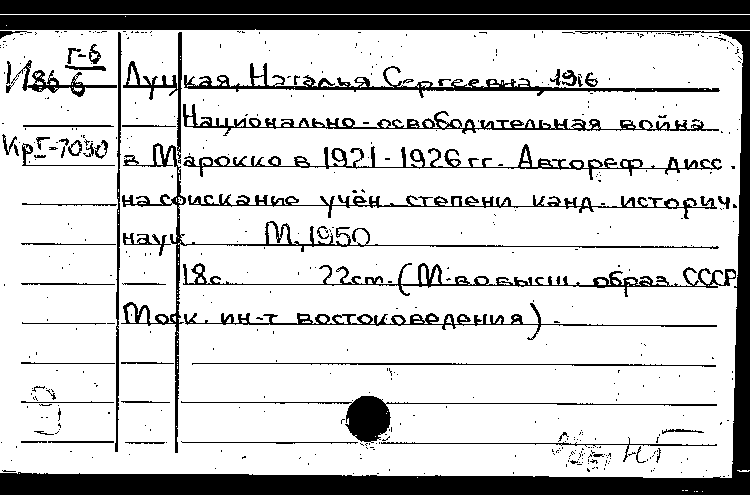 Г-6
И86 6
Луцкая, Наталья Сергеевна, 1916
Национально-освободительная война
Кр I-7090
в Марокко в 1921-1926 гг. Автореф. дисс.
на соискание учён. степени канд. историч.
наук. М, 1950.
18с. 22см. (М-во высш. образ. СССР
Моск. ин-т востоковедения).